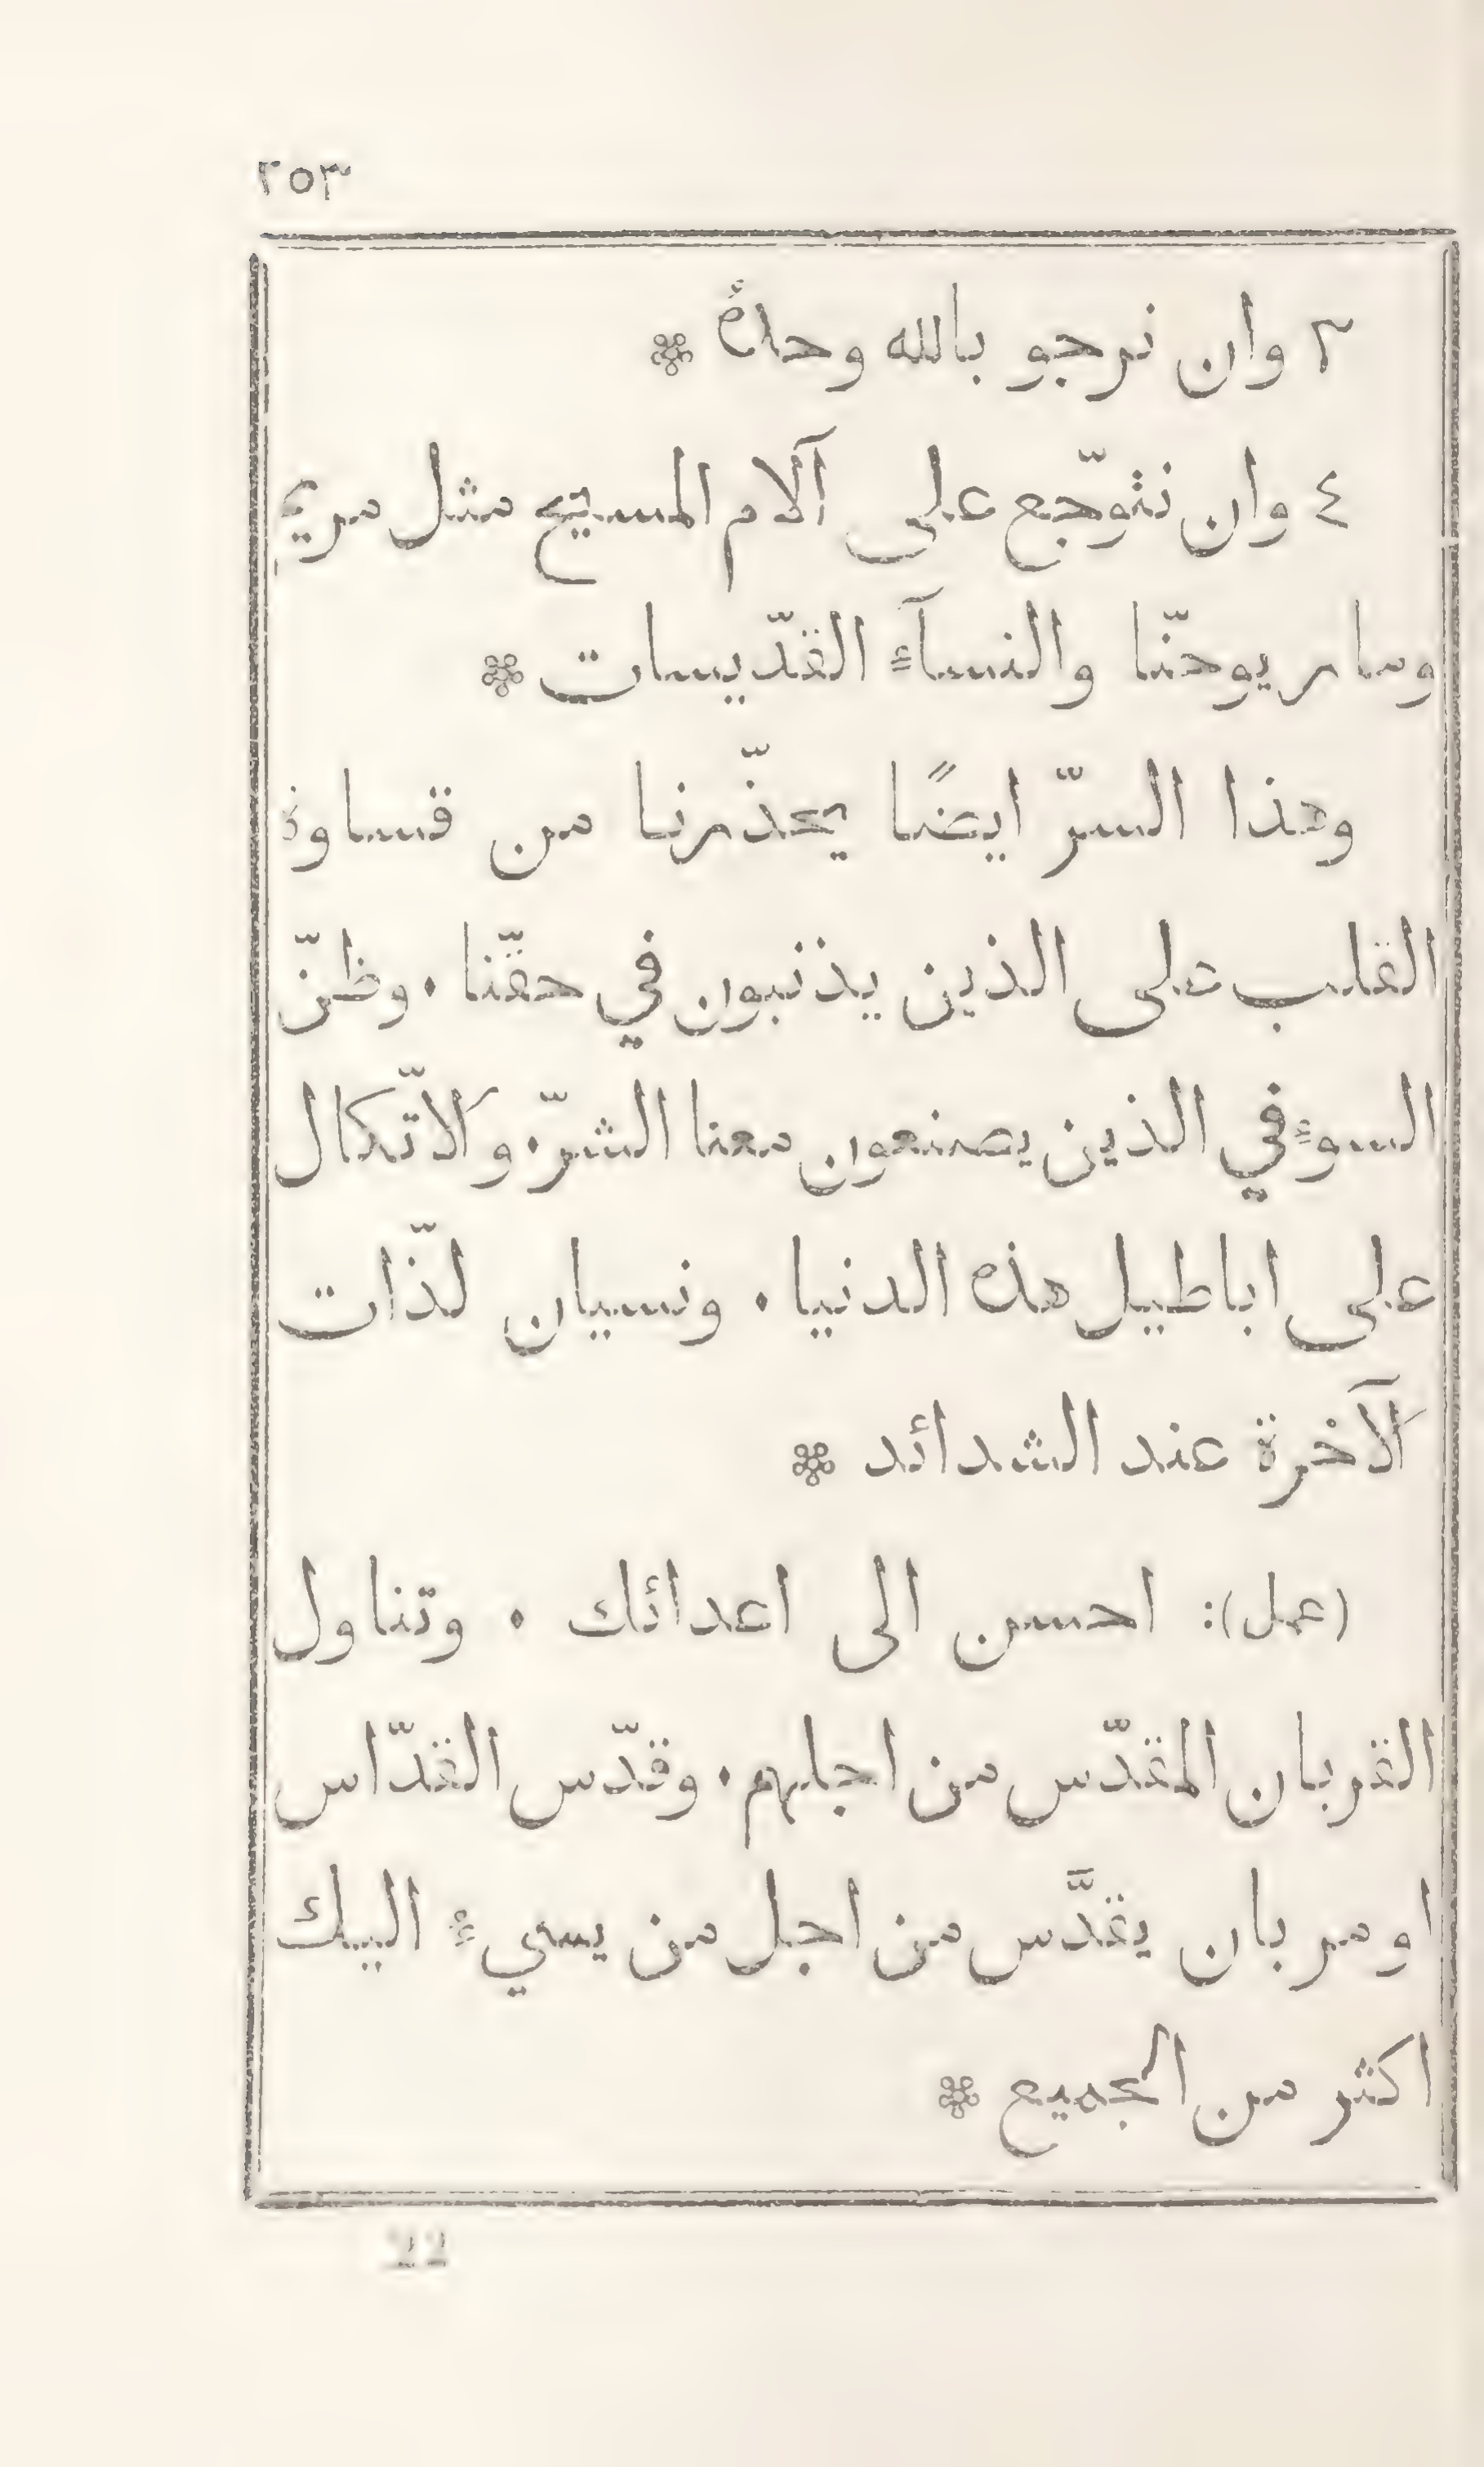 ٢٥٣
٣ وان نرجو بالله وحدهُ
٤ وان نتوجّع على آلام المسيح مثل مريم
ومار يوحنّا والنسآءِ القدّيسات
وهذا السرّ ايضًا يحذّرنا من قساوة
القلب على الذين يذنبون في حقّنا . وظنّ
السوءِ في الذين يصنعون معنا الشرّ . والاتّكال
على اباطيل هذه الدنيا . ونسيان لذّات
الآخرة عند الشدائد
(عمل): احسن الى اعدائك . وتناول
القربان المقدّس من اجلهم . وقدّس القدّاس
او مر بان يقدَّس من اجل من يسيءُ اليك
اكثر من الجميع
22